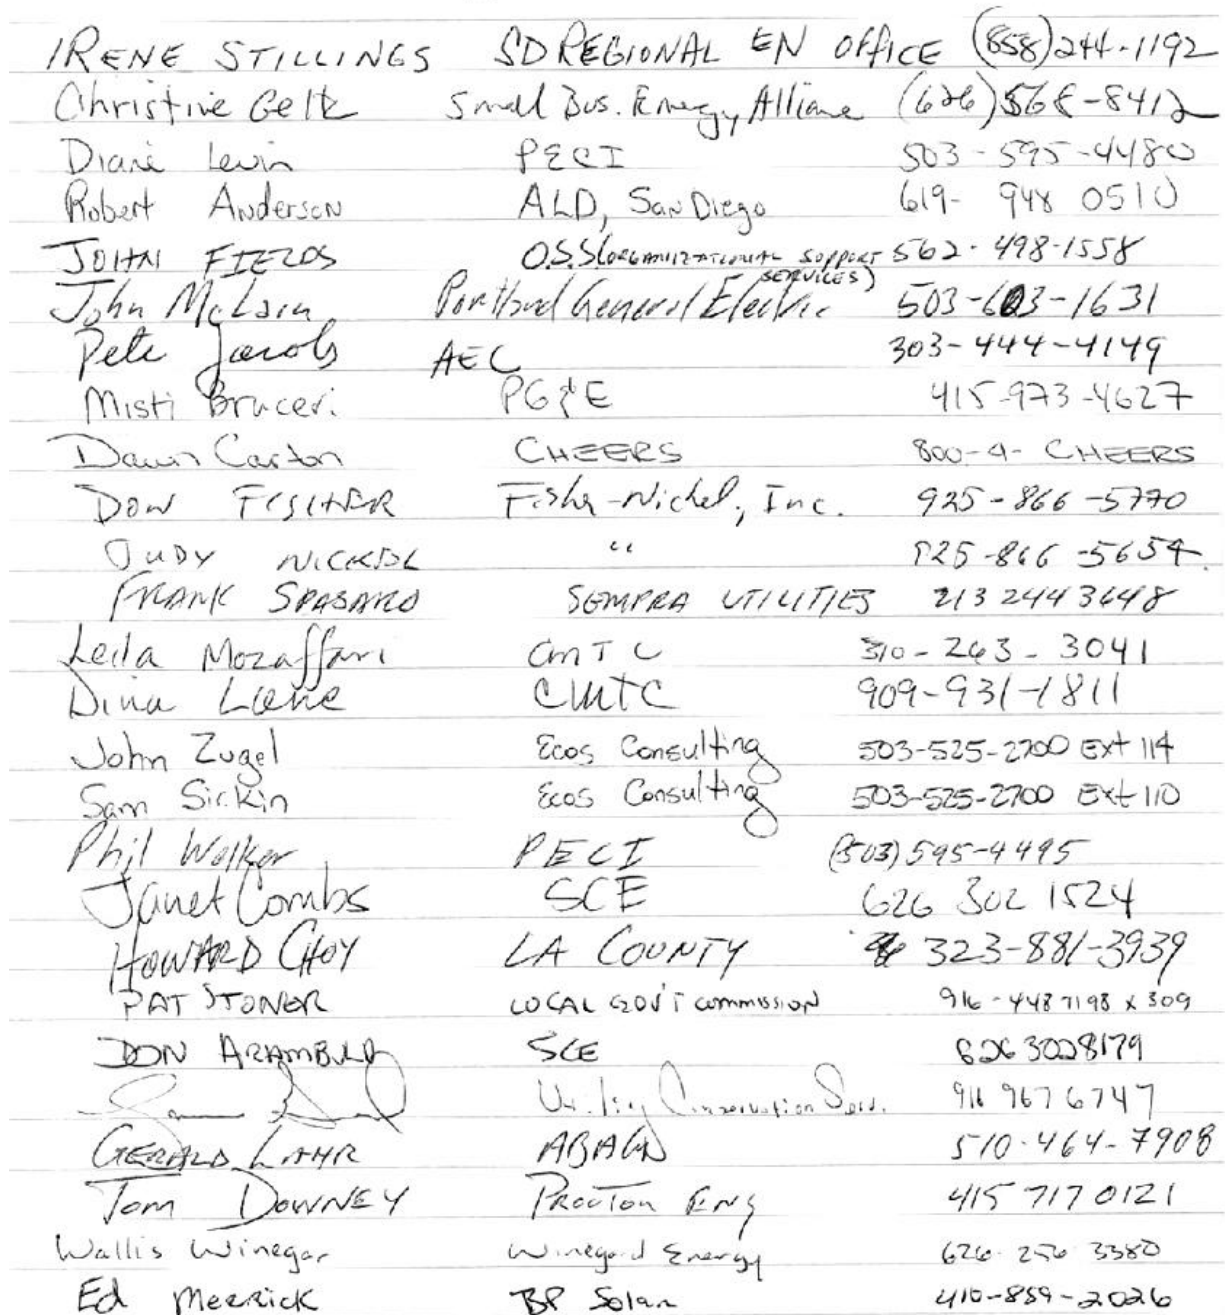 IRENE STILLINGS SD REGIONAL EN OFFICE (858)244-1192
Christine Geltz Small Bus. Energy Alliance (626)568-8412
Diane Levin PECI 503-595-4480
Robert Anderson ALD, San Diego 619- 948 0510
JOHN FIELDS O.S.S (ORGANIZATIONAL SUPPORT SERVICES) 562-498-1558
John McLain Portland General Electric 503-603-1631
Pete Jacobs AEC 303-444-4149
Misti Bruceri PG&E 415-973-4627
Dawn Carton CHEERS 800-4-CHEERS
DON FISHER Fisher-Nickel, Inc. 925-866-5770
JUDY NICKEL " 925-866-5654
FRANK SPASARO SEMPRA UTILITIES 213 244 3648
Leila Mozaffari CMTC 310-263-3041
Dina Lane CMTC 909-931-1811
John Zugel Ecos Consulting 503-525-2700 Ext 114
Sam Sirkin Ecos Consulting 503-525-2700 Ext 110
Phil Welker PECI (503) 595-4495
Janet Combs SCE 626 302 1524
HOWARD CHOY LA COUNTY 323-881-3939
PAT STONER LOCAL GOV'T COMMISSION 916-448 7198 x 309
DON ARAMBULA SCE 626 302 8179
Utility Conservation Serv. 916 967 6747
GERALD LAHR ABAG 510-464-7908
Tom DOWNEY Proctor Eng 415 717 0121
Wallis Winegar Winegard Energy 626-256-3380
Ed Merrick BP Solar 410-859-2026